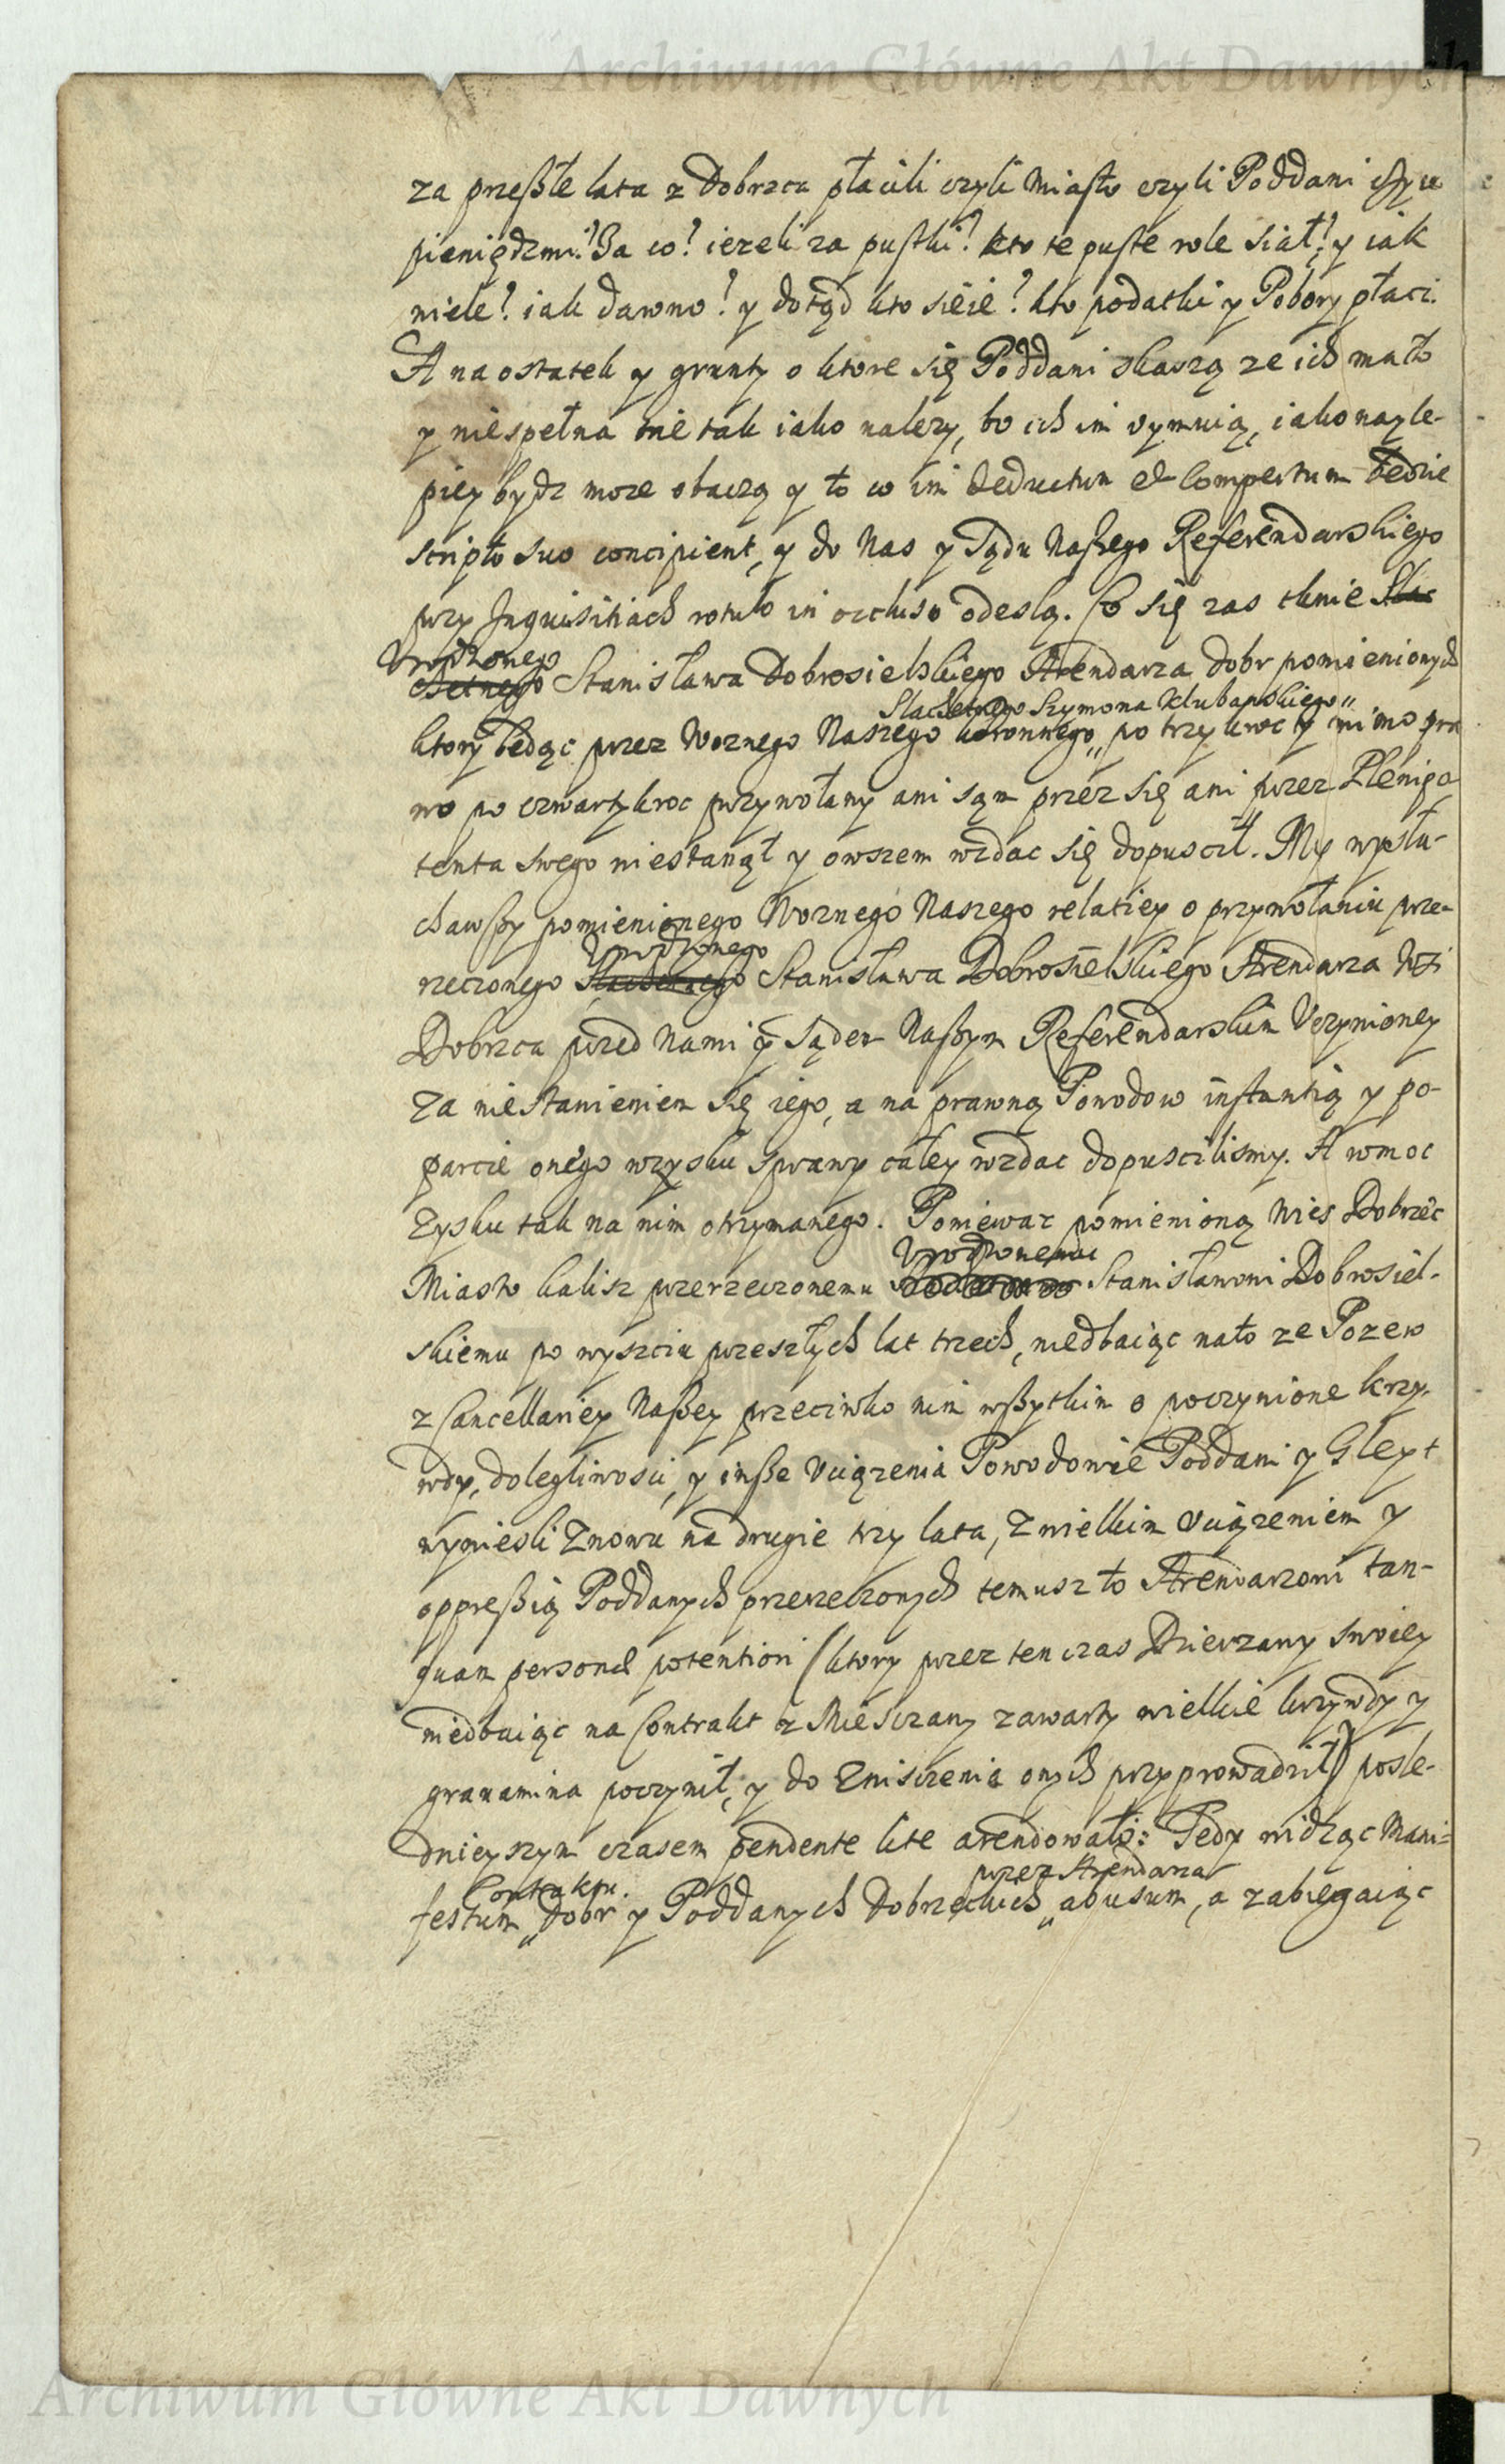 Archiwum Główne Akt Dawnych
za preszłe lata z Dobrzca płacili czyli Miasto czyli Poddani
pieniędzmi? Za co? iezeli za pustki? kto te puste role siał? y iak
wiele? iak dawno? y dotąd kto sieie? kto podatki y Pobory płaci.
A na ostatek y grunty o ktore się Poddani skarzą ze ich mało
y niespełna nie tak iako nalezy, bo ich im uymuią, iako nayle-
piey bydz moze obaczą y to co im deductum et compertum będzie
scripto suo concipient, y do Nas y Sądu Naszego Referendarskiego
przy Inquisitiach rotulo in occluso odeslą. Co się zas tknie Slac
Urodzonego
chetnego Stanisława Dobrosielskiego Arendarza dobr pomienionych
Slachetnego Szymona Klubapskiego"
ktory będąc przez Woznego Naszego koronnego" po trzykroc y mimo pra
wo po czwartykroc przywołany ani sąm przez się ani przez Plenipo
tenta swego niestanął y owszem wzdac się dopuscił. My wysłu-
chawszy pomienionego Woznego Naszego relatiey o przywołaniu prze-
Urodzonego
rzeczonego Slachetnego Stanisława Dobrosielskiego Arendarza Wsi
Dobrzca przed Nami y Sądem Naszym Referendarskim Uczynioney
Za niestanieniem się iego, a na prawną Powodow instantią y po-
parcie onego wzysku sprawy całey wzdac dopuscilismy. A wmoc
Zysku tak na nim otrzymanego. Poniewaz pomienioną Wies Dobrzec
Urodzonemu
Miasto Kalisz przerzeczonemu Stanisławowi Dobrosiel-
skiemu po wyszciu przeszłych lat trzech, niedbaiąc nato ze Pozew
z Cancellariey Naszey przeciwko nim wszytkim o poczynione krzy-
wdy, dolegliwosci, y insze Uciązenia Powodowie Poddani y Gleyt
wyniesli Znowu na drugie trzy lata, Zwielkim Uciązeniem y
oppressią Poddanych przerzeczonych temusz to Arendarzowi tan-
quam personae potentiori (ktory przez ten czas Dzierzawy swoiey
niedbaiąc na Contrakt z Miesczany zawarty wielkie krzywdy y
grauamina poczynił, y do Zniszczenia onych przyprowadził) posle-
dnieyszym czasem pendente lite arendowało: Tedy widząc Mani-
Contraktu. przez Arendarza
festum "Dobr y Poddanych Dobrzeckich" abusum, a zabiegaiąc
Archiwum Główne Akt Dawnych